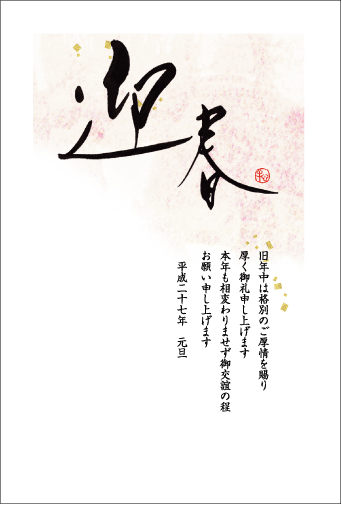 迎春
旧年中は格別のご厚情を賜り
厚く御礼申し上げます
本年も相変わりませず御交誼の程
お願い申し上げます
平成二十七年　元旦